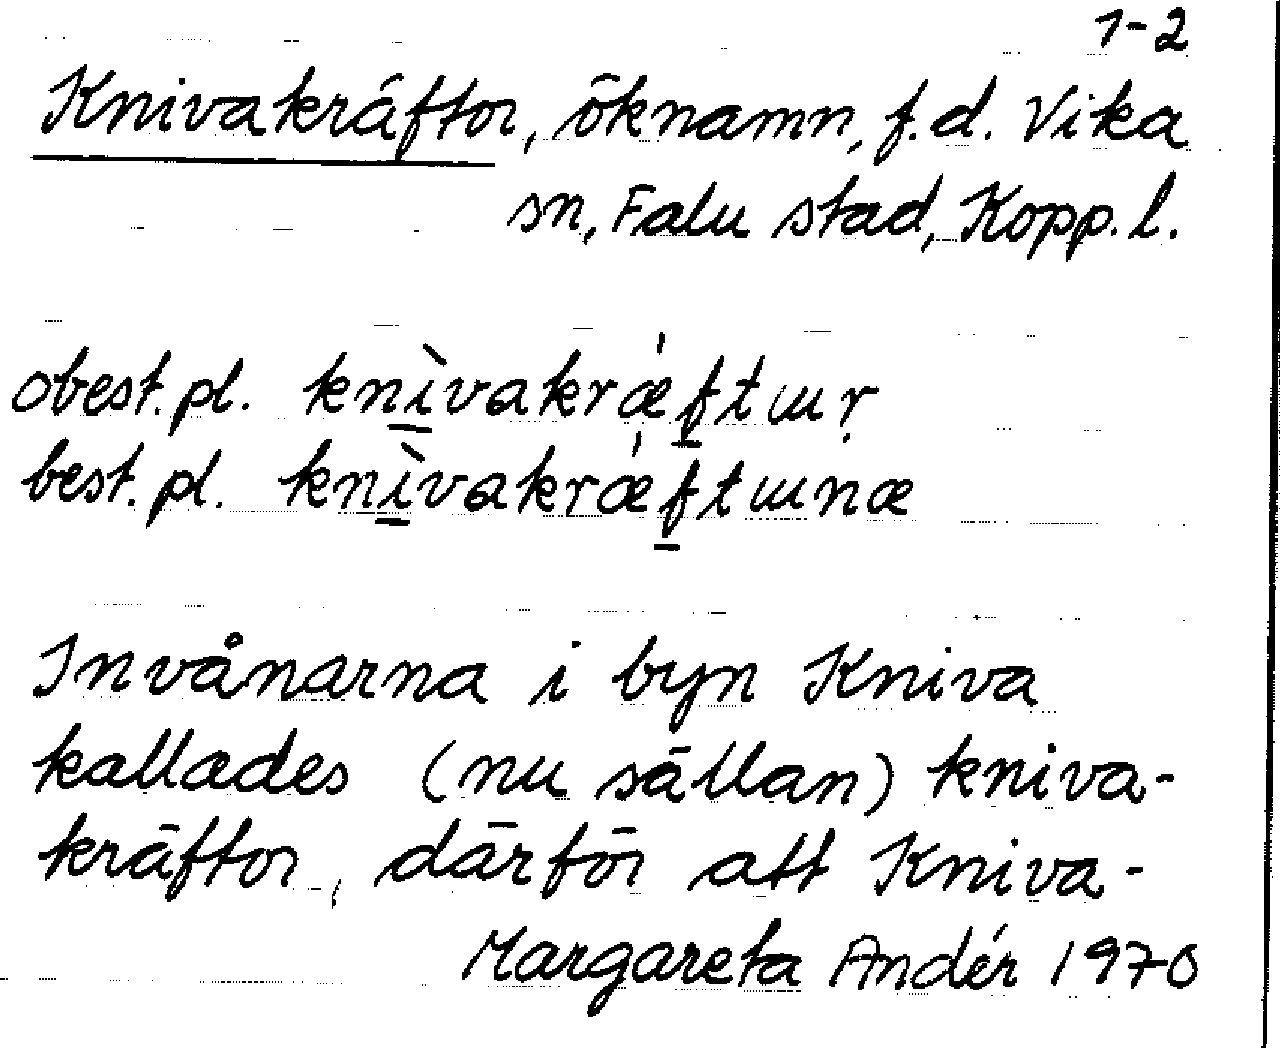 1-2
Knivakräftor, öknamn, f.d. Vika
sn, Falu stad, Kopp.l.
obest.pl. knìvakræ̍ftɯṛ
best.pl. knìvakræ̍ftɯnæ
Invånarna i byn Kniva
kallades (nu sällan) kniva-
kräftor, därför att Kniva-
Margareta Andér 1970